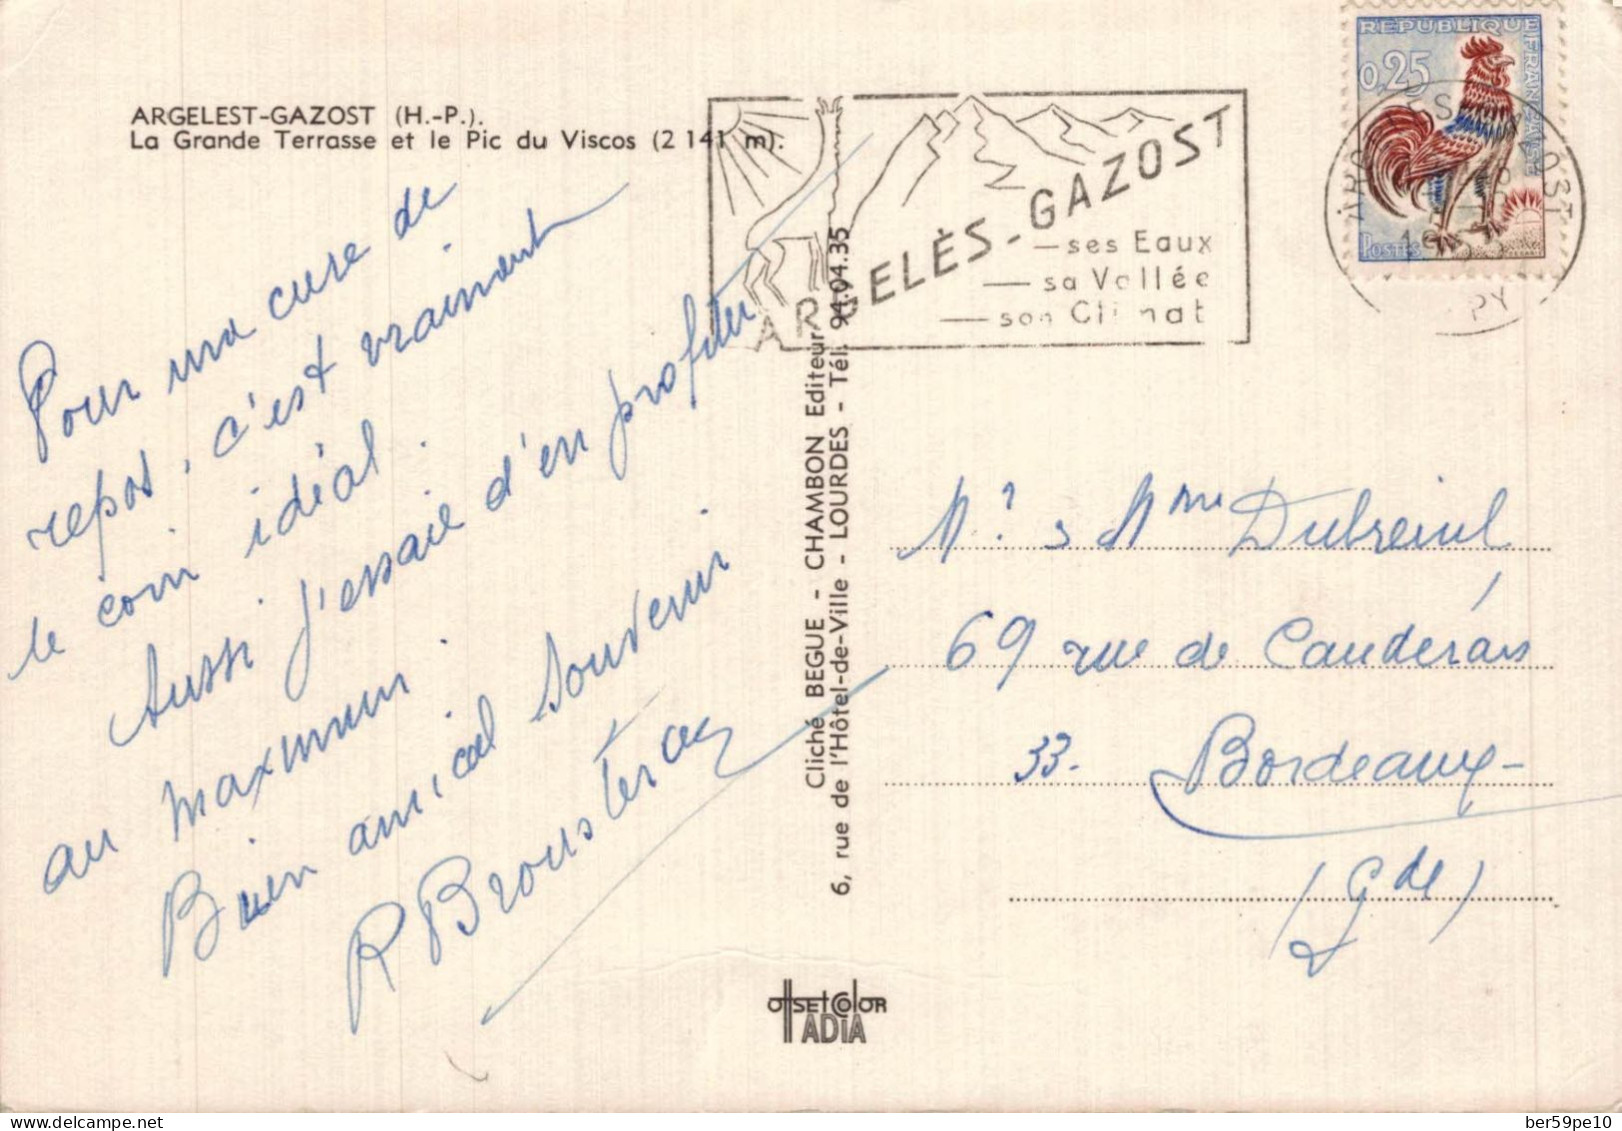 ARGELEST-GAZOST (H.-P.).
La Grande Terrasse et le Pic du Viscos (2 141 m).
Pour ma cure de
repos, c'est vraiment
le coin idéal.
Aussi j'essaie d'en profiter
au maximum.
Bien amical souvenir
R Brousterau
ARGELÈS-GAZOST
— ses Eaux
— sa Vallée
— son Climat
REPUBLIQUE FRANÇAISE
0,25
POSTES
Cliché BEGUE - CHAMBON Editeur
6, rue de l'Hôtel-de-Ville - LOURDES - Tél. 94.04.35
Mr & Mme Dubreuil
69 rue de Caudéran
33. Bordeaux -
(Gde)
OffsetColor
IADIA
delcampe.net
ber59pe10